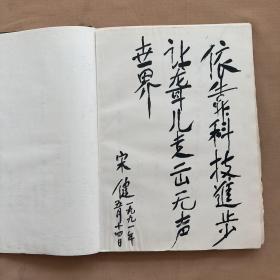 依靠科技進步
让聋儿走出无声
世界
宋健
一九九一年
五月十四日